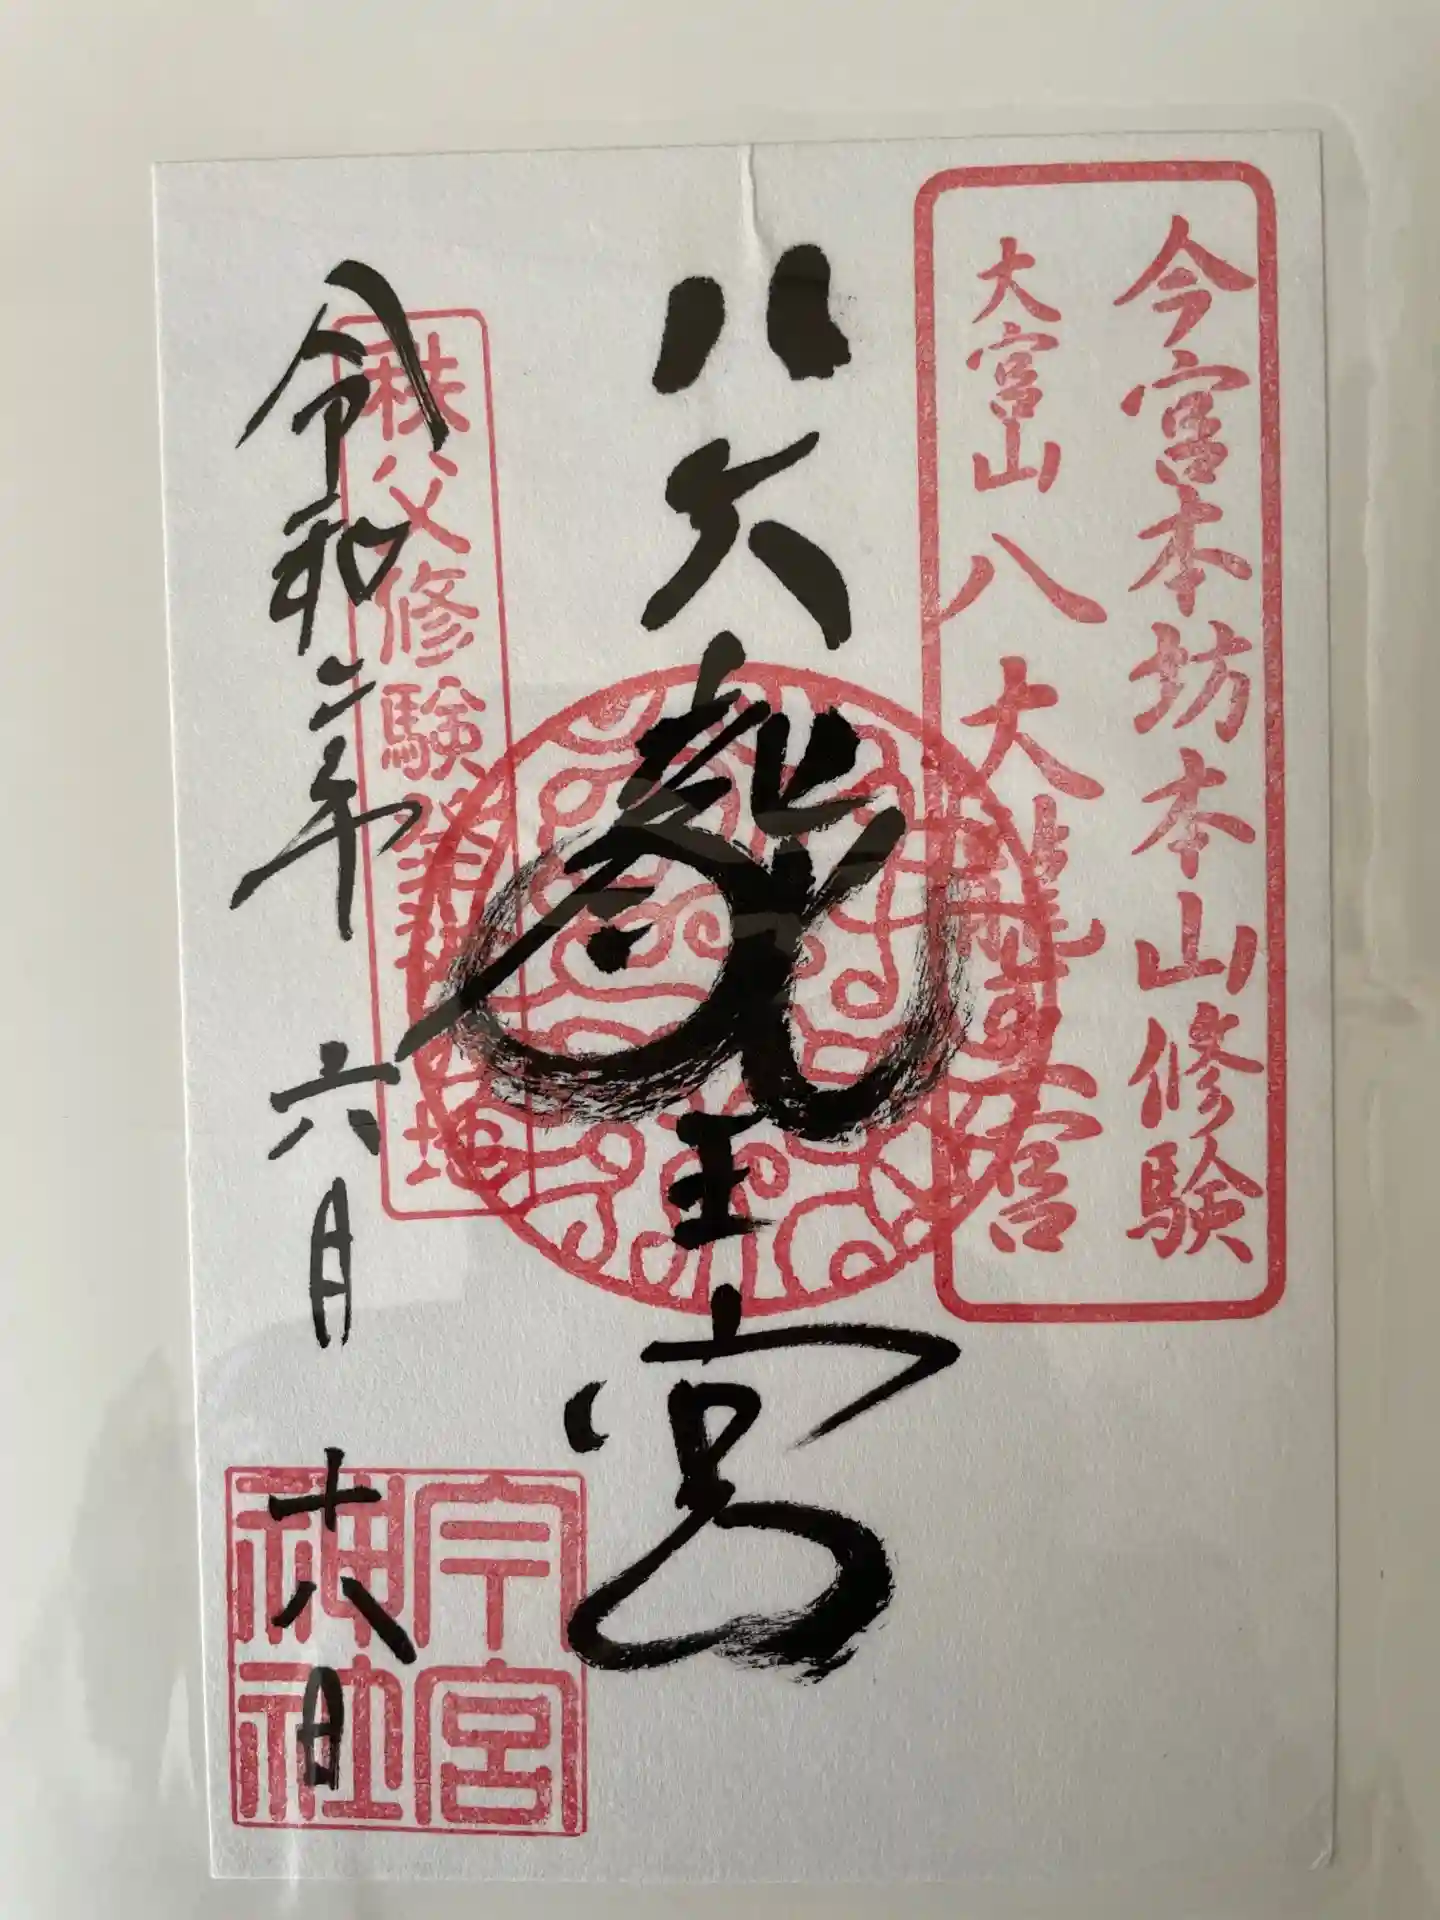 今宮本坊本山修験
大宮山八大龍王宮
八大龍王宮
秩父修験発祥之地
令和二年六月十八日
今宮
神社